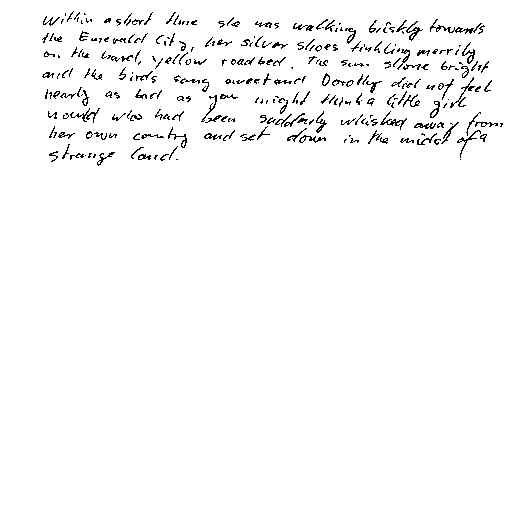 Within a short time she was walking briskly towards
the Emerald City, her silver shoes tinkling merrily
on the hard, yellow roadbed. The sun shone bright
and the birds sang sweet and Dorothy did not feel
nearly as bad as you might think a little girl
would who had been suddenly whisked away from
her own country and set down in the midst of a
strange land.